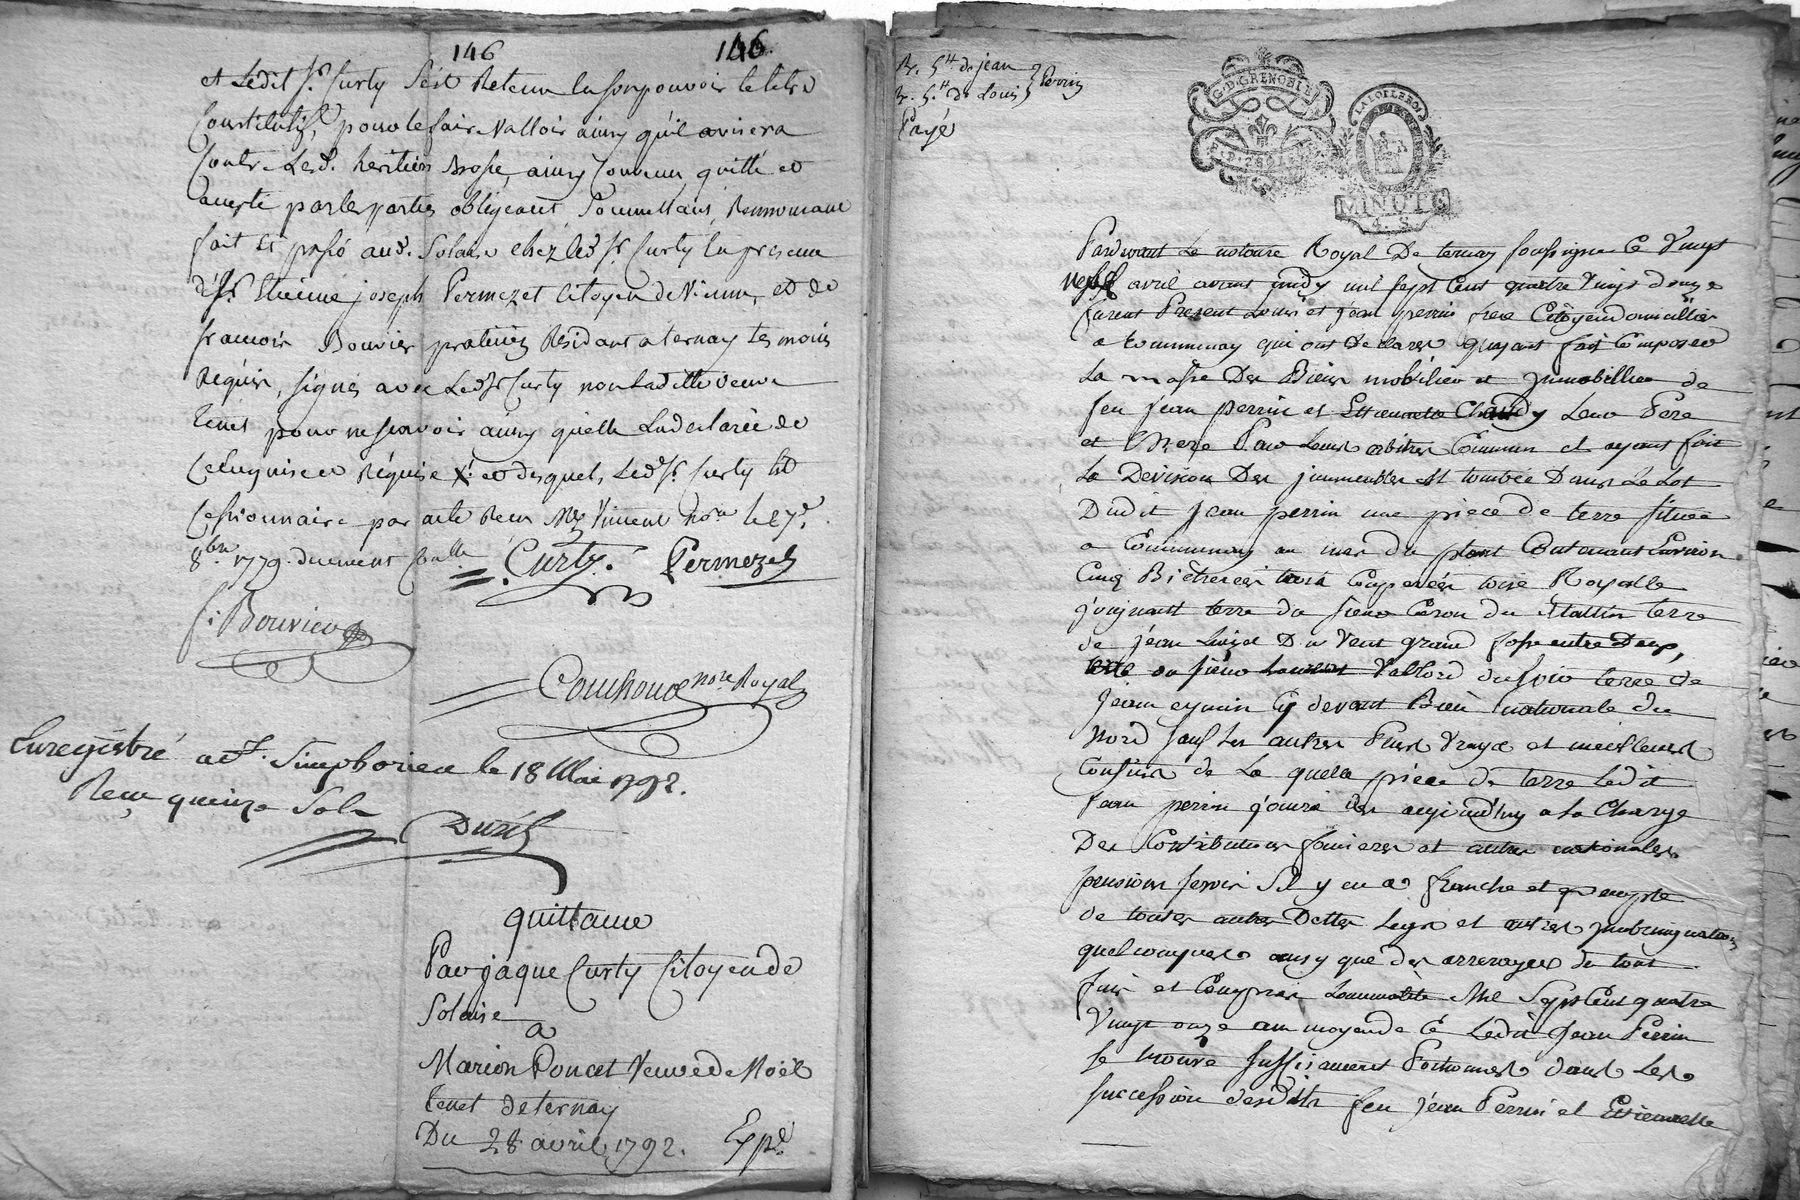 146 146.
et Ledit Sr. Curty s'est Retenu en son pouvoir le titre
Constitutif, pour le faire valloir ainsy qu'il avisera
Contre Lesd. heritiers ainsy convenu quitté et
accepté par les parties obligeant, Soumettant, Renonceant
fait et passé aud. Solaise chez led. Sr. Curty en presence
de Sr. Etienne joseph Permezel Citoyen de Vienne, et de
francois Bouvier praticien Résidant a ternay temoins
Requis, signés avec Led. Sr. Curty non laditte veuve
tenet pour ne scavoir ainsy quelle La declaré de
ce Enquise et Réquise X. et desquels, Led. Sr. Curty est
Cessionnaire par acte Recu Me Vincent nore le 27e.
8bre 1779. duement
Curty. Permezel
f: Bouvier
nore Royal
Enregistré a St. Simphorien le 18 Mai 1792.
Reçu quinze Sols
quittance
Par jaque Curty Citoyen de
Solaise
a
Marion Poncet Veuve de Noël
Tenet de ternay
Du 28 avril 1792. Expé.
R. 5tt de jean
R. 5tt de Louis Perrin
Payé
G. D. GRENOBLE
LA LOI LE ROI
MINUTE
4. S
Pardevant Le notaire Royal De ternay soussigné Ce Vingt
neuf avril avant midy mil sept Cent quatre Vingt douze
furent Present Louis et jean perrin frere Citoyen domicillier
a Communay qui ont Declarer quayant fait Composer
La masse Des Biens mobilier et Immobillier de
feu jean perrin et Estiennette Chardy Leur Pere
et Mere Par Leurs arbitres Commun et ayant fait
La Division Des jmmeubles Est tombée Dans Le Lot
Dudit jean perrin une piece de terre situee
a Communay au mas du plant Contenant Environ
Cinq Bicherées trois Couperées toise Royalle
joignant terre du sieur du Matin terre
de jean Du Vent grand fosse entre Deux,
du sieur Laurent Vallord du soir terre de
jean eymin Cy devant Bien nationale du
Nord sauf Les autres Plus Vraye et meilleurs
Confins de La quelle piece de terre Ledit
jean perrin jouira des aujourd'huy a La Charge
Des Contributions foncieres et autres nationales
pensions servis s'il y en a franche et exempte
de toutes autres Dettes Legs et autres
quelconques ainsy que des arrerages de tout
jusqu et Compris Lannuité Mil Sept Cent quatre
Vingt onze au moyen de Ce Ledit jean Perrin
se trouve suffisament Portionner dans Les
succession desdits feu jean Perrin et Estiennette